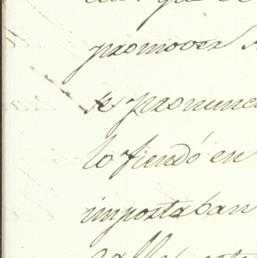 promover
se pronunc
lo fiendó en
importaban